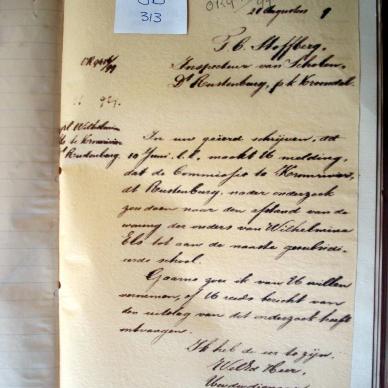 313
28 Augustus 9
T. C. Stoffberg,
Inspecteur van Scholen,
Dt Rustenburg, p.k. Kroondal.
Wilhelmina
Rustenburg.
In uw geëerd schrijven, dd
10 Juni l.l. maakt U melding,
dat de Commissie te
dt Rustenburg, nader onderzoek
zou doen naar den afstand van de
woning der ouders van Wilhelmina
Els tot aan de naaste gesubsidi-
eerde school.
Gaarne zou ik van U willen
vernemen, of U reeds bericht van
den uitslag van dit onderzoek heeft
ontvangen.
Ik heb de eer te zijn,
WelEd Heer,
Uw